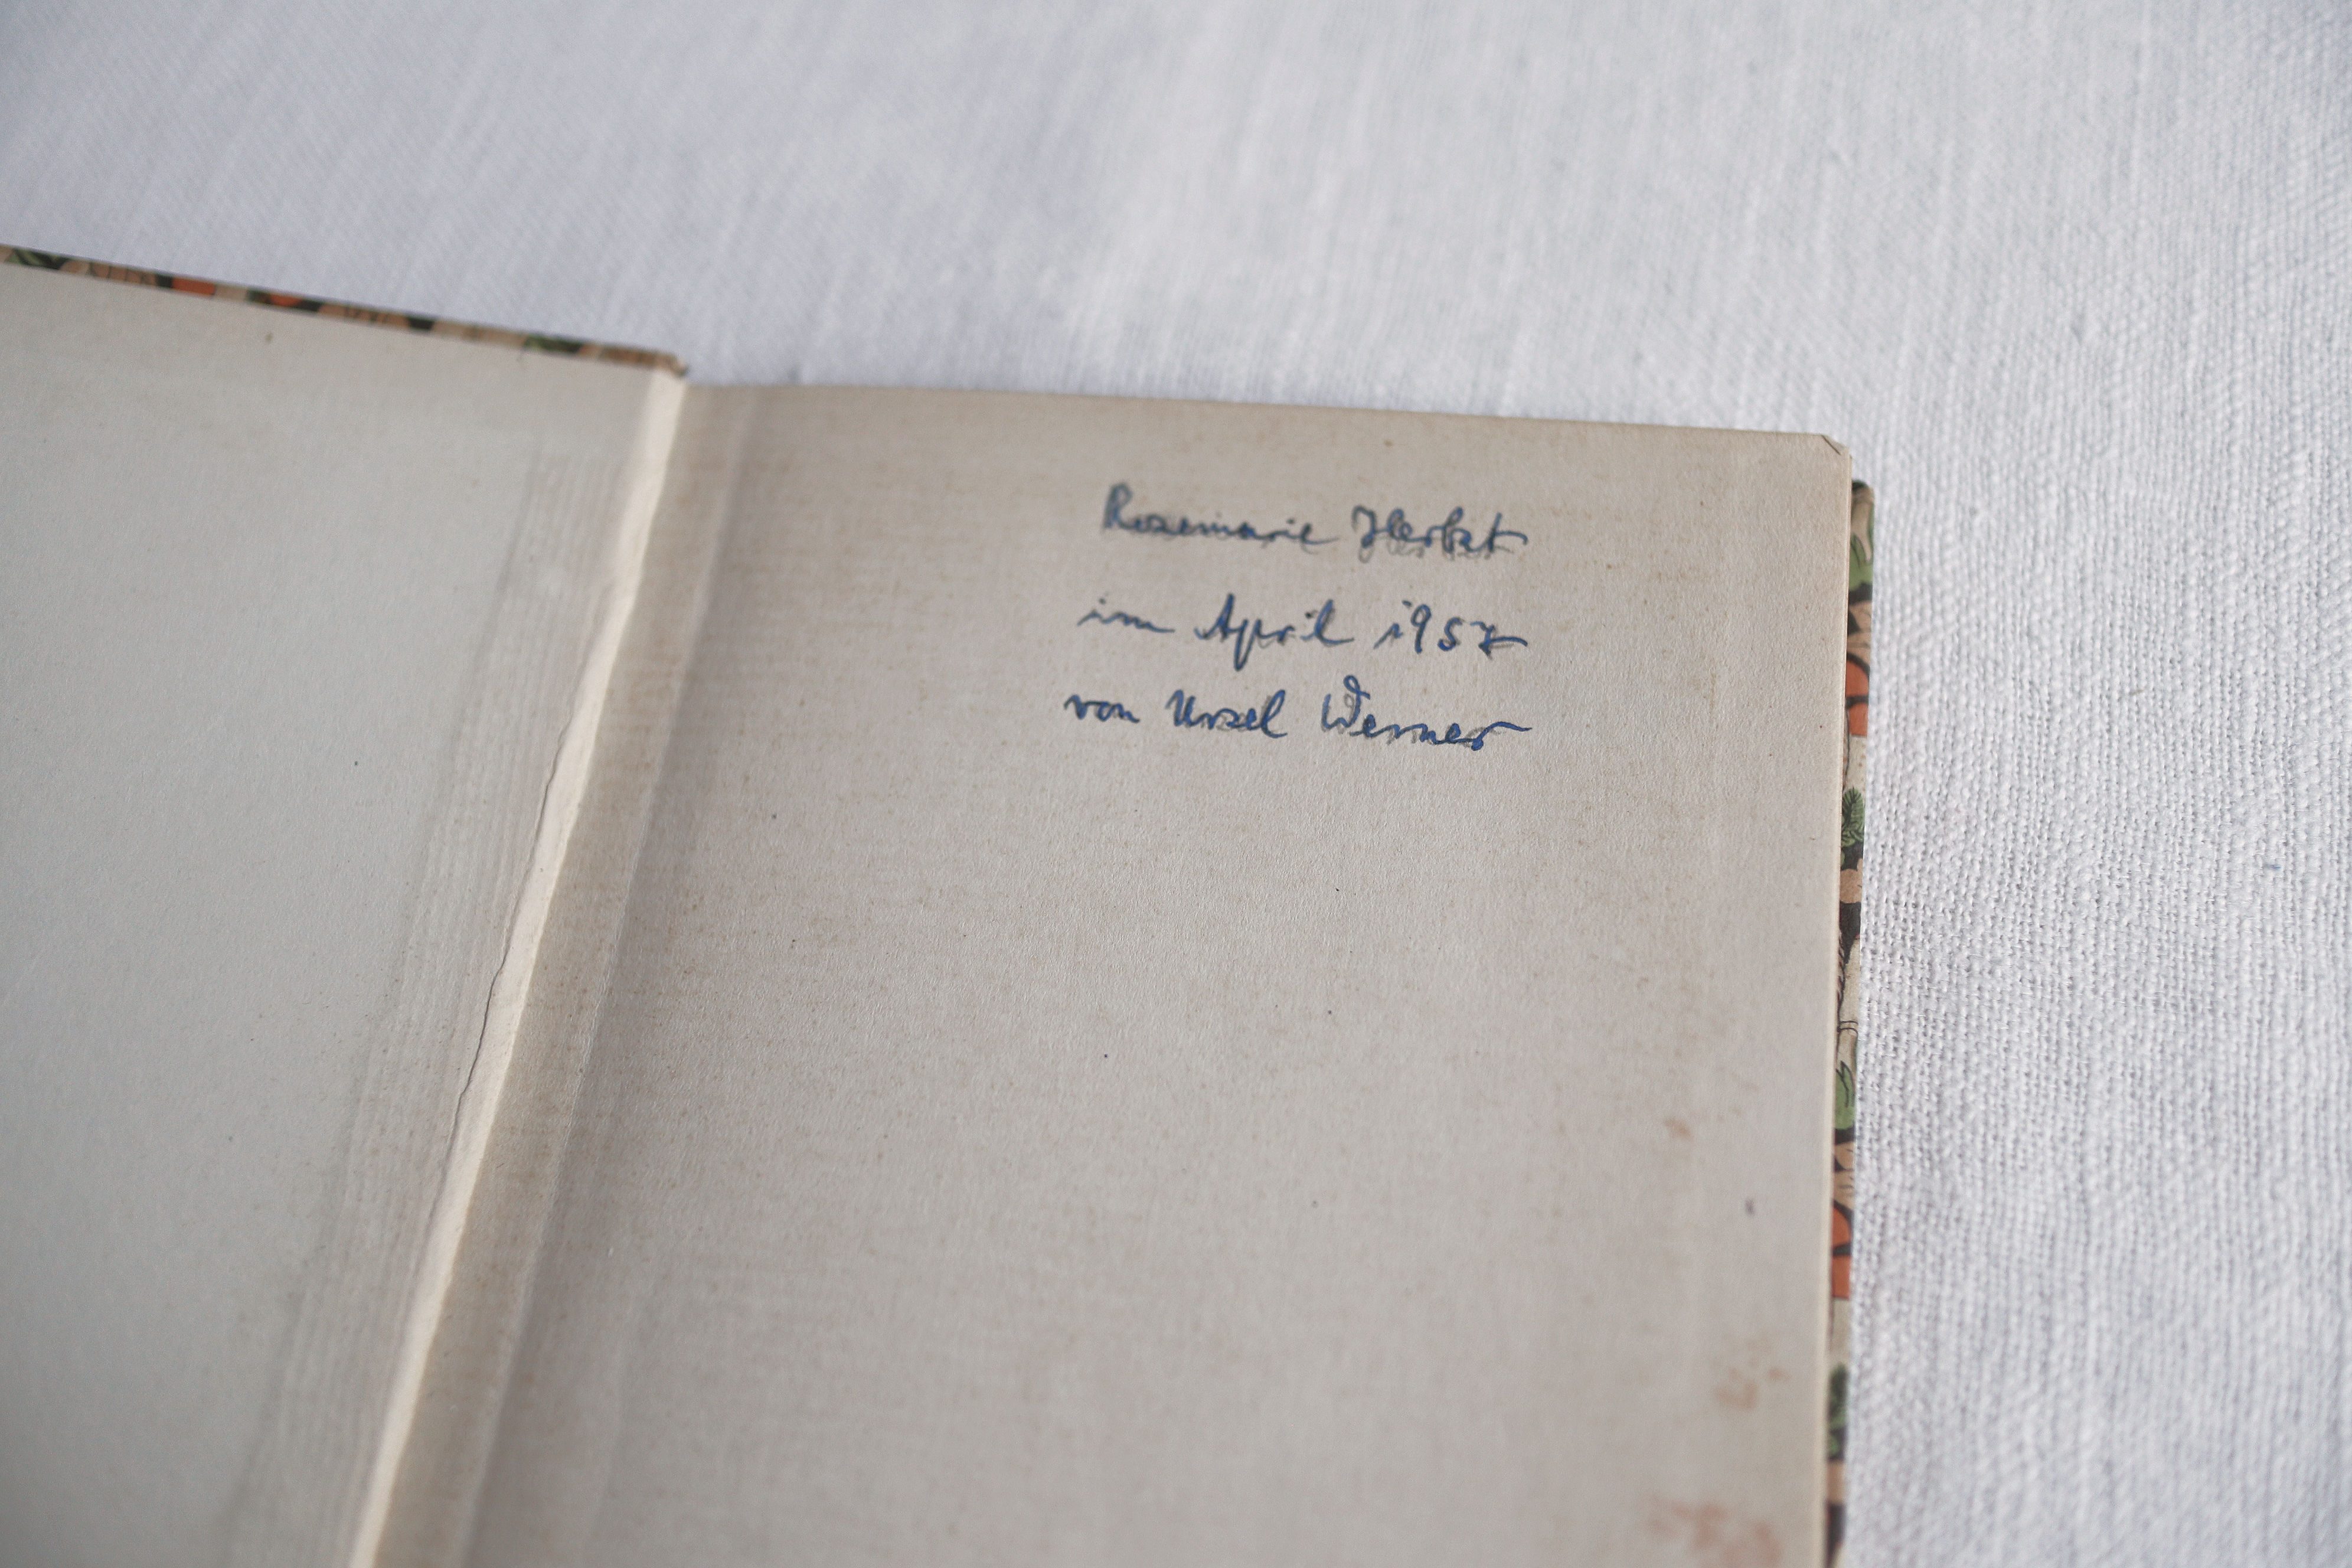 Rosemarie Herbst
im April 1957
von Ursel Werner